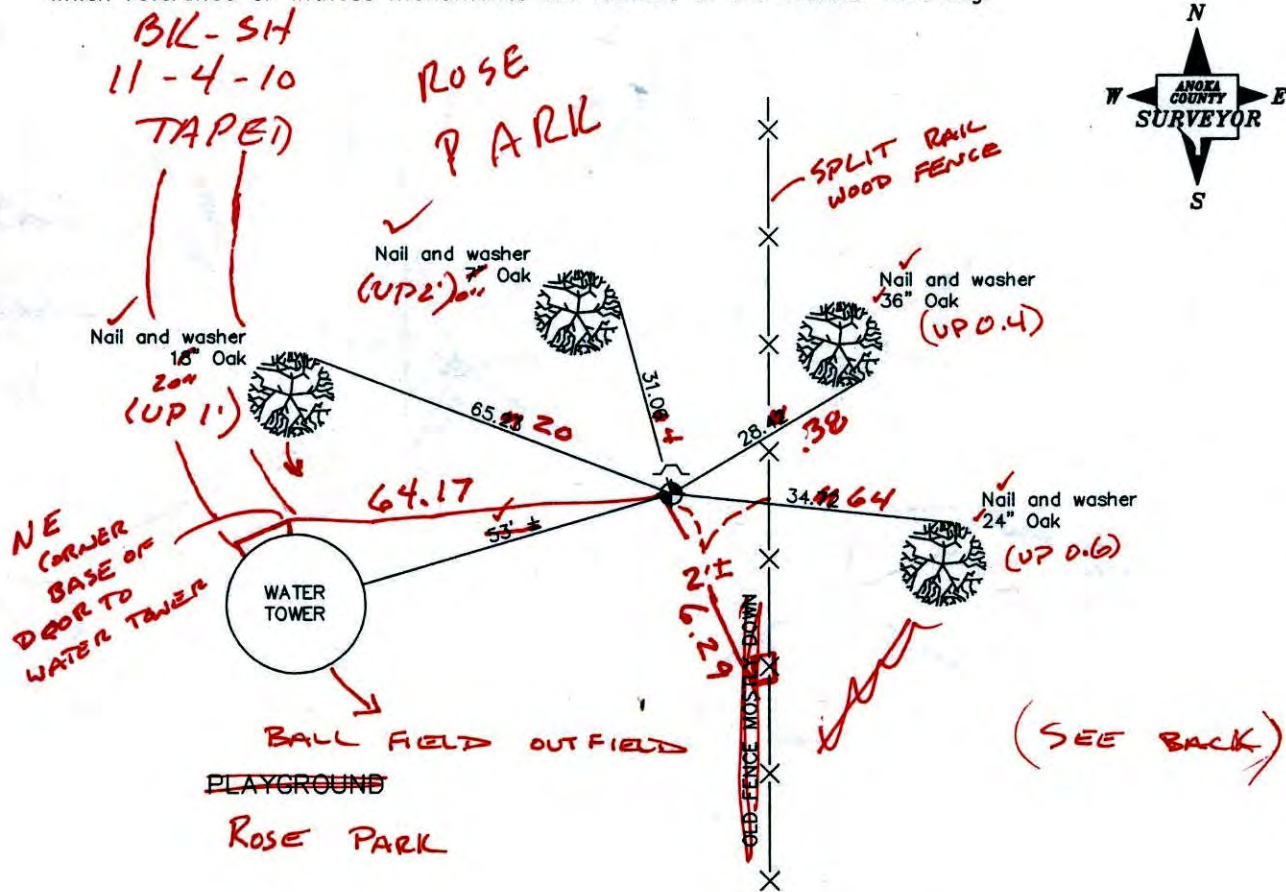 BK-SH
11-4-10
TAPED
ROSE
PARK
N
W
ANOKA
COUNTY
E
SURVEYOR
S
SPLIT RAIL
WOOD FENCE
Nail and washer
7" Oak
(UP 2')
Nail and washer
36" Oak
(UP 0.4)
Nail and washer
18" Oak
20"
(UP 1')
65.23 20
31.06
28.42 .38
34.72 64
64.17
53' ±
Nail and washer
24" Oak
(UP 0.6)
NE
CORNER
BASE OF
DOOR TO
WATER TOWER
WATER
TOWER
2'±
6.29
OLD FENCE MOSTLY DOWN
BALL FIELD OUTFIELD
(SEE BACK)
PLAYGROUND
ROSE PARK